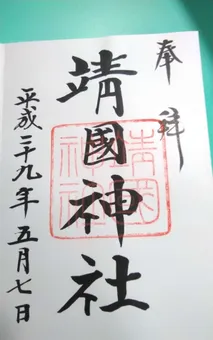 奉拝
靖國神社
平成二十九年五月七日